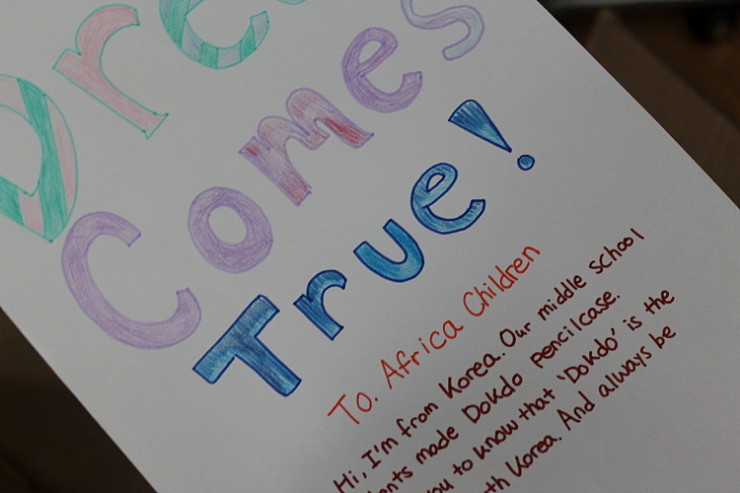 Dre
Comes
True!
To. Africa Children
Hi, I'm from Korea. Our middle school
ents made Dokdo pencilcase.
ou to know that 'Dokdo' is the
th Korea. And always be